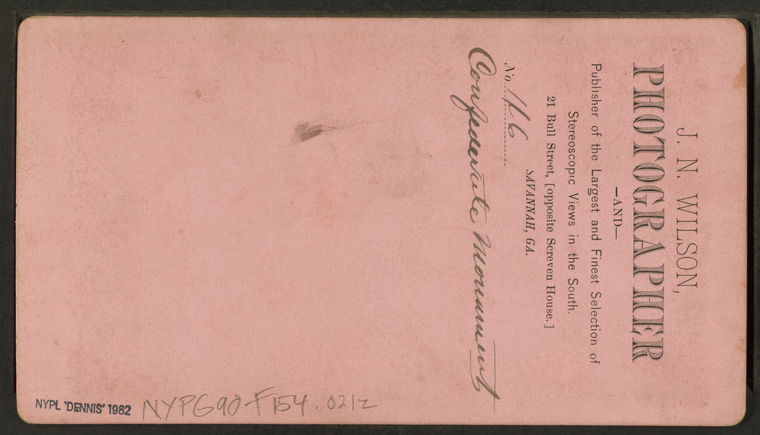 J. N. WILSON,
PHOTOGRAPHER
—AND—
Publisher of the Largest and Finest Selection of
Stereoscopic Views in the South.
21 Bull Street, [opposite Screven House.]
SAVANNAH, GA.
No. 146
Confederate Monument
NYPL 'DENNIS' 1982
NYPG90-F154.021z